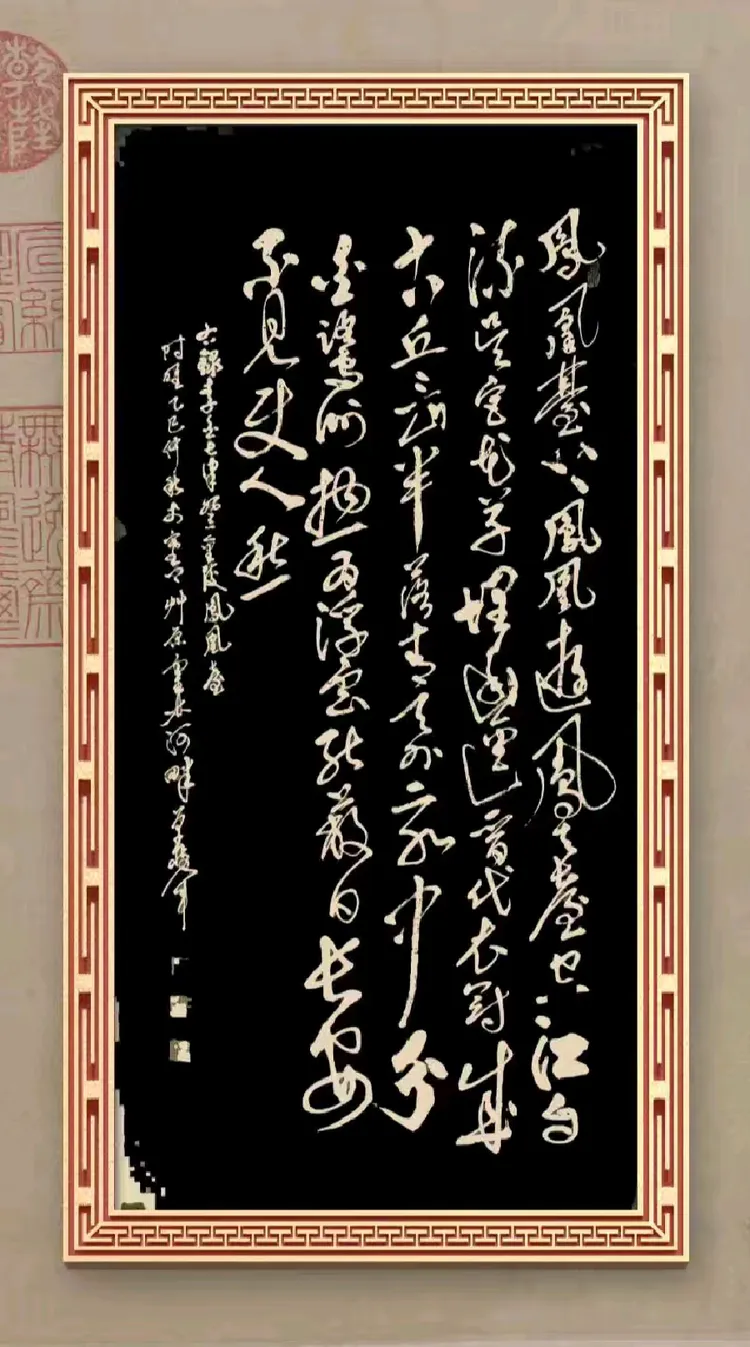 鳳凰臺上鳳凰遊鳳去臺空江自
流吳宮花草埋幽徑晉代衣冠成
古丘三山半落青天外二水中分
白鷺洲總為浮雲能蔽日長安
不見使人愁
右錄李白七律登金陵鳳凰臺
時乙巳仲秋艸原河畔